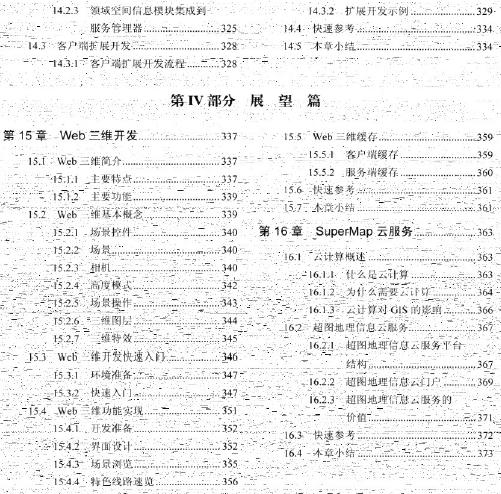 14.2.3 领域空间信息模块集成到
服务管理器 325
14.3 客户端扩展开发 328
14.3.1 客户端扩展开发流程 328
14.3.2 扩展开发示例 329
14.4 快速参考 334
14.5 本章小结 334
第IV部分 展 望 篇
第 15 章 Web 三维开发 337
15.1 Web 三维简介 337
15.1.1 主要特点 337
15.1.2 主要功能 339
15.2 Web 三维基本概念 339
15.2.1 场景控件 340
15.2.2 场景 340
15.2.3 相机 340
15.2.4 高度模式 342
15.2.5 场景操作 343
15.2.6 三维图层 344
15.2.7 三维特效 345
15.3 Web 三维开发快速入门 346
15.3.1 环境准备 347
15.3.2 快速入门 347
15.4 Web 三维功能实现 351
15.4.1 开发准备 352
15.4.2 界面设计 352
15.4.3 场景浏览 355
15.4.4 特色线路速览 356
15.5 Web 三维缓存 359
15.5.1 客户端缓存 359
15.5.2 服务端缓存 360
15.6 快速参考 361
15.7 本章小结 361
第 16 章 SuperMap 云服务 363
16.1 云计算概述 363
16.1.1 什么是云计算 363
16.1.2 为什么需要云计算 364
16.1.3 云计算对 GIS 的影响 366
16.2 超图地理信息云服务 367
16.2.1 超图地理信息云服务平台
结构 367
16.2.2 超图地理信息云门户 369
16.2.3 超图地理信息云服务的
价值 371
16.3 快速参考 372
16.4 本章小结 373